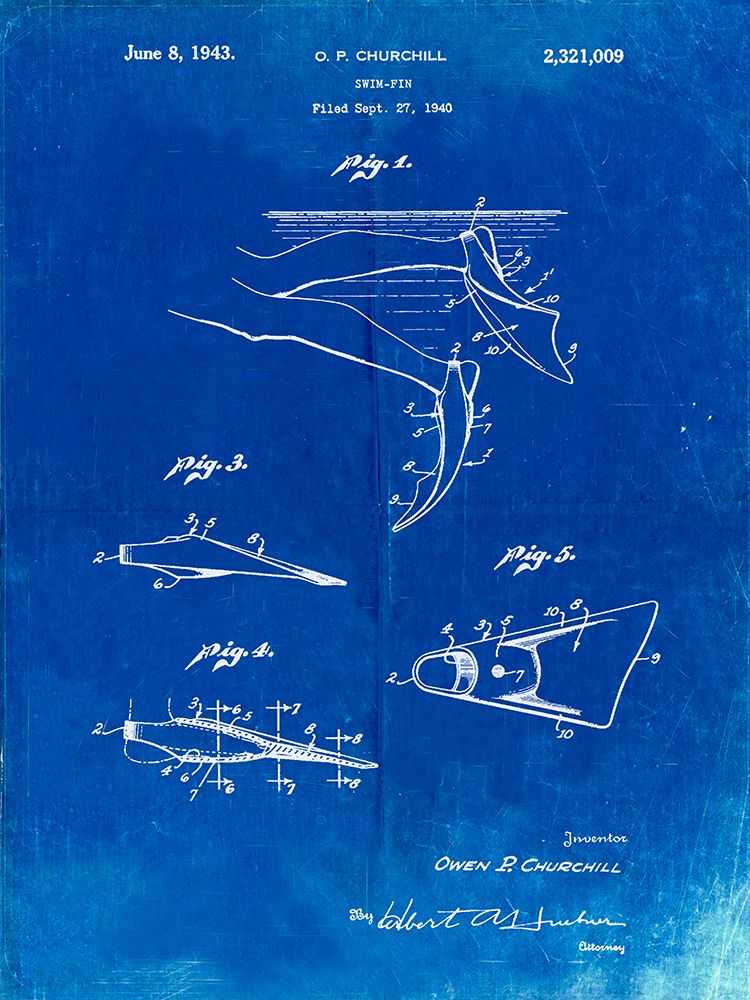 June 8, 1943.
O. P. CHURCHILL
2,321,009
SWIM-FIN
Filed Sept. 27, 1940
Fig. 1.
2
6
3
1'
5
10
8
10
9
2
3
6
5
7
8
1
9
Fig. 3.
3
5
8
2
6
Fig. 5.
10
8
3
5
4
2
7
9
10
Fig. 4.
3
6
7
5
8
8
2
4
6
7
6
7
8
Inventor
OWEN P. CHURCHILL
By
Attorney